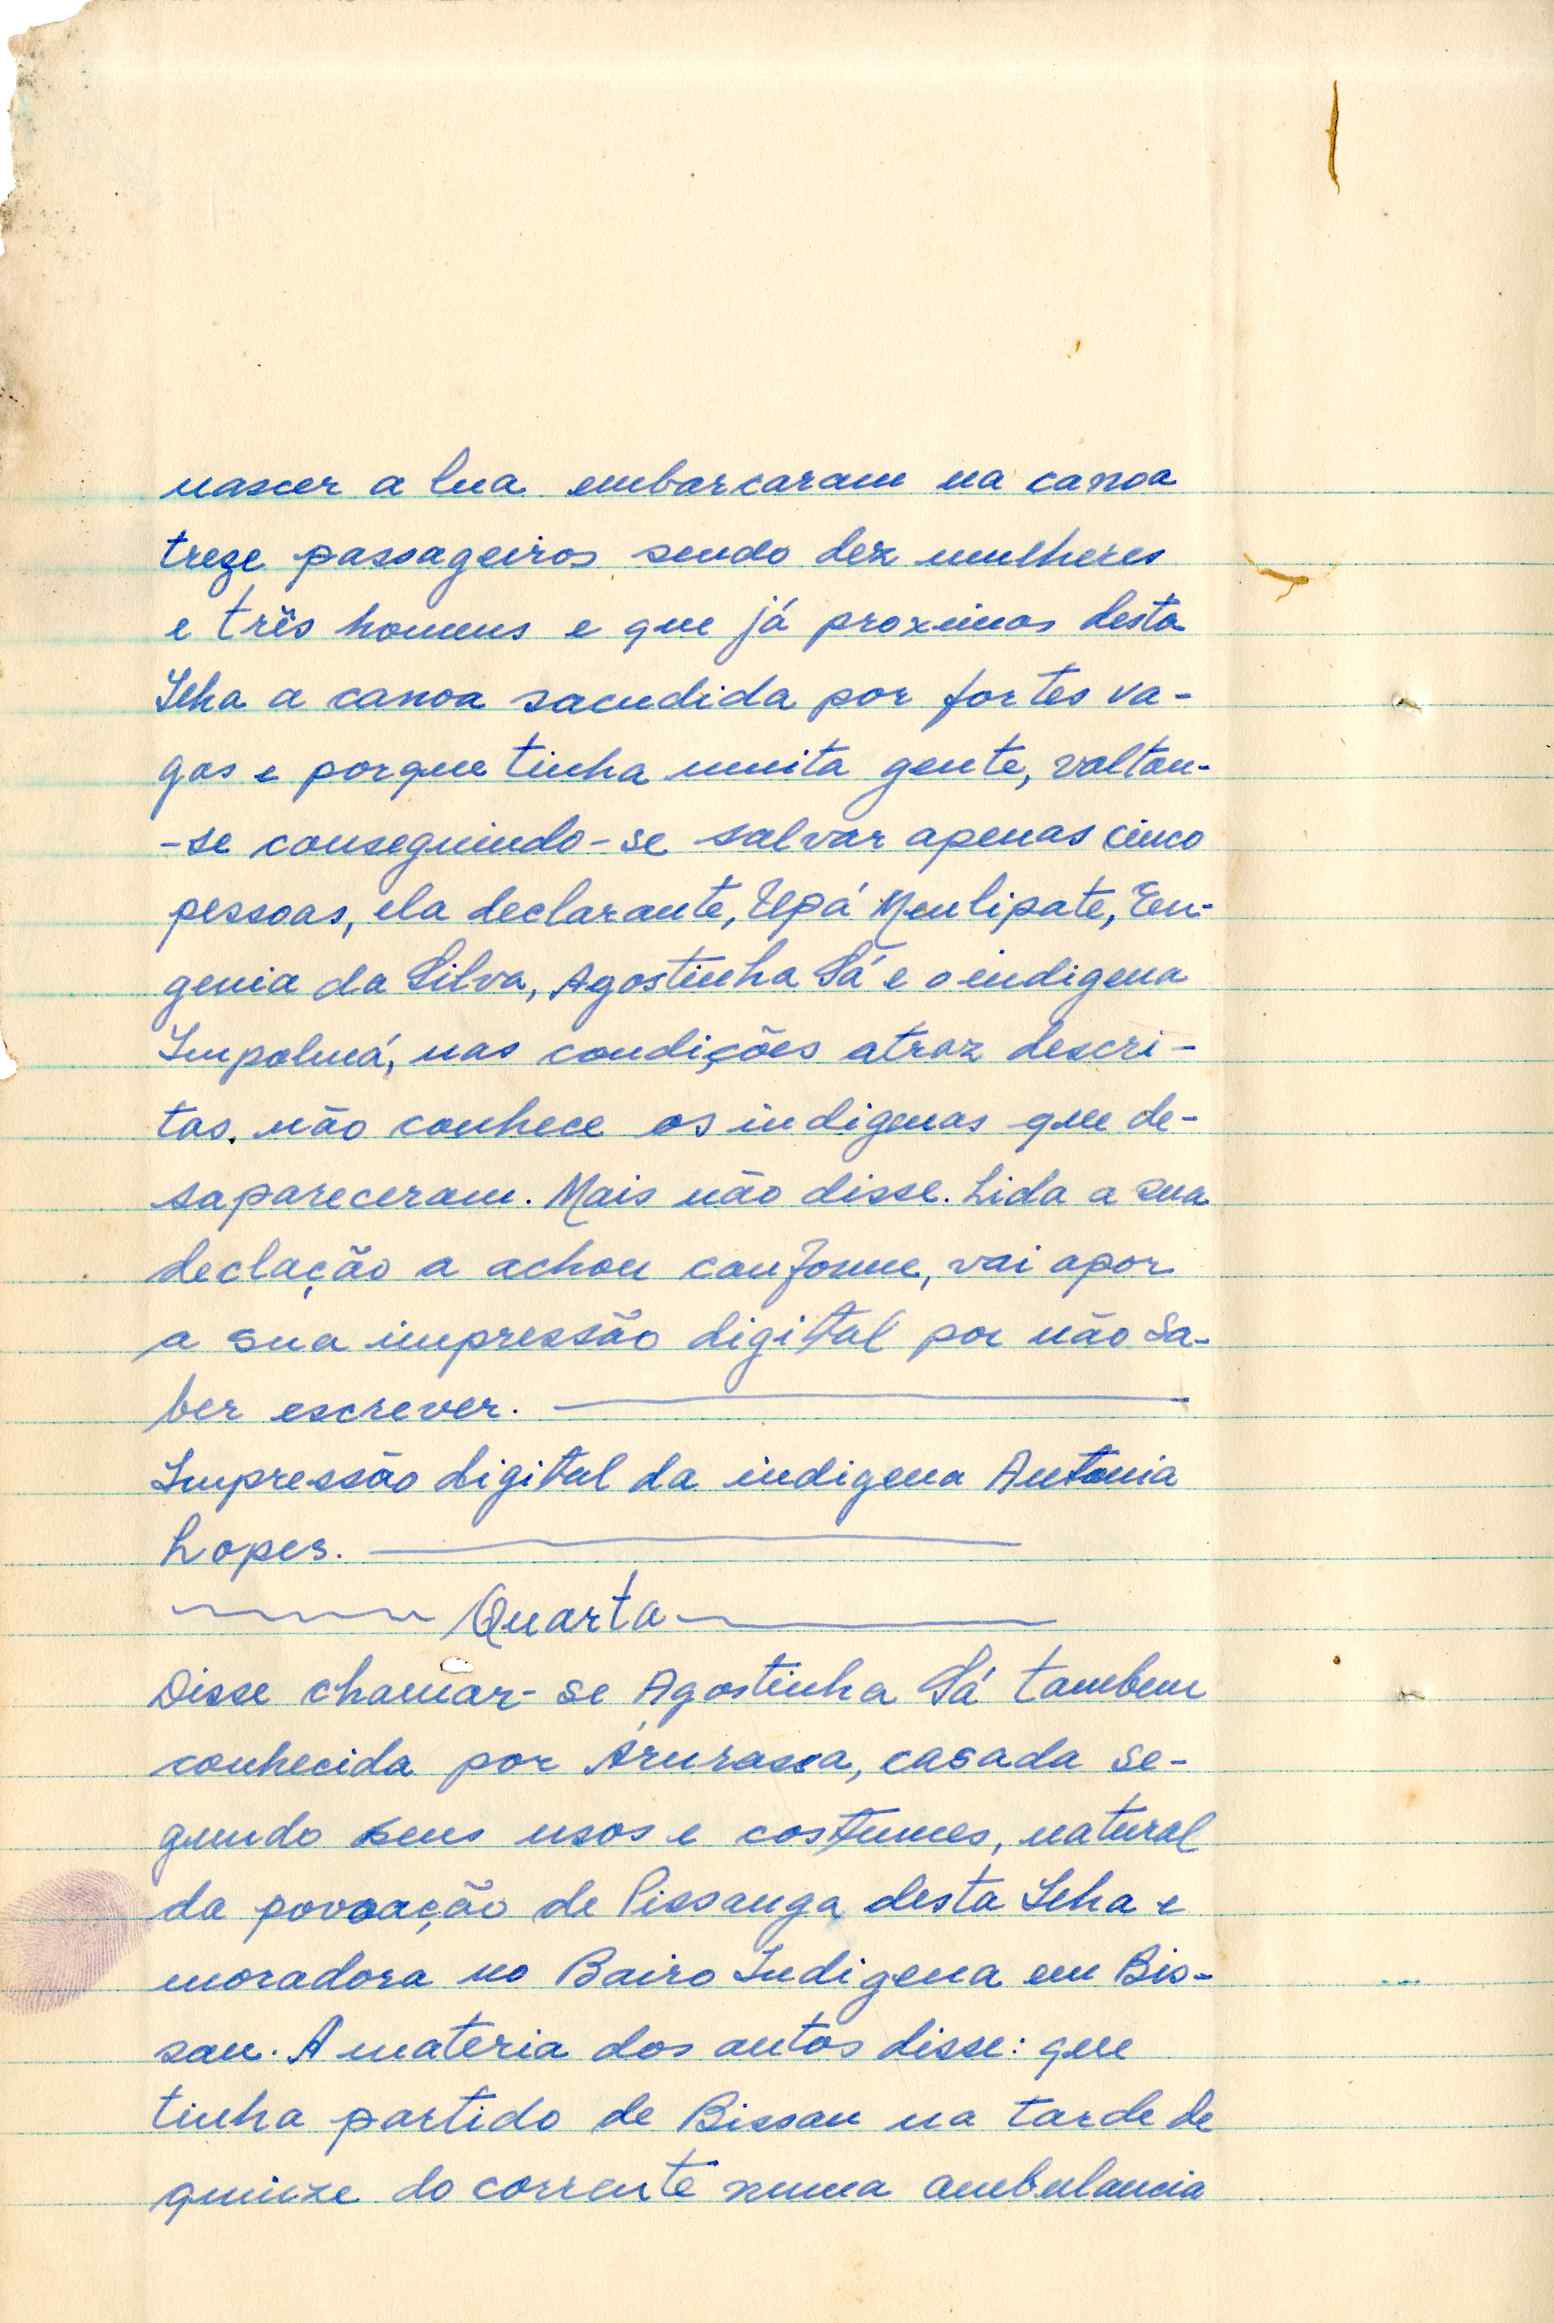 nascer a lua embarcaram na canoa
treze passageiros sendo dez mulheres
e três homens e que já proximos desta
Ilha a canoa sacudida por fortes va-
gas e porque tinha muita gente, voltou-
-se conseguindo-se salvar apenas cinco
pessoas, ela declarante, Upá Menlipate, Eu-
genia da Silva, Agostinha Sá e o indigena
Impolmá, nas condições atraz descri-
tas. não conhece os indigenas que de-
sapareceram. Mais não disse. Lida a sua
declação a achou conforme, vai apor
a sua impressão digital por não sa-
ber escrever.
Impressão digital da indigena Antonia
Lopes.
Quarta
Disse chamar-se Agostinha Sá tambem
conhecida por Árurassa, casada se-
gundo seus usos e costumes, natural
da povoação de Pissanga desta Ilha e
moradora no Bairo Indigena em Bis-
sau. A materia dos autos disse: que
tinha partido de Bissau na tarde de
quinze do corrente numa ambulancia